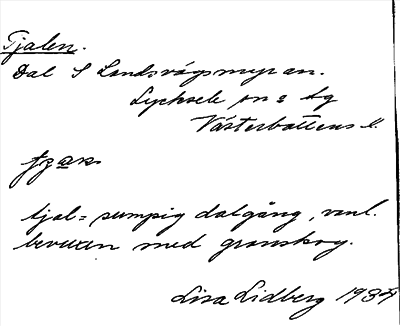 Tjalen.
Dal S Landsvägsmyran.
Lycksele sn o tg
Västerbottens l.
tjal = sumpig dalgång, vanl.
bevuxen med granskog.
Lisa Lidberg 1934